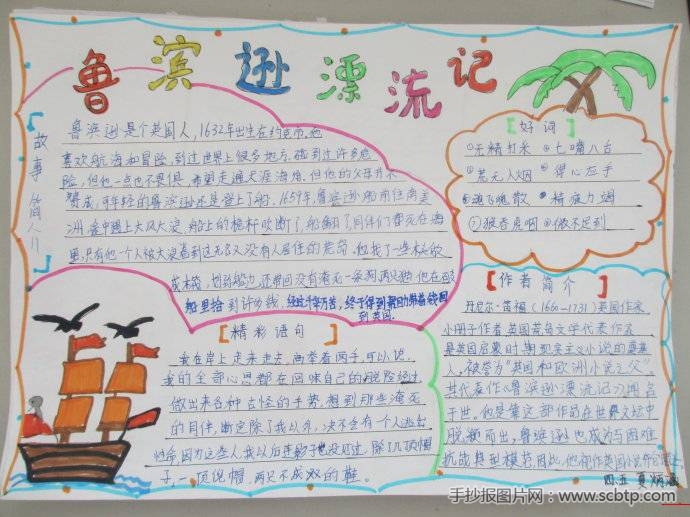 鲁滨逊漂流记
故事简介
鲁滨逊是个英国人，1632年出生在约克市，他
喜欢航海和冒险，到过世界上很多地方，碰到过许多危
险，但他一点也不畏惧，希望走遍天涯海角，但他的父母不
赞成，可年轻的鲁滨逊还是登上了船。1659年，鲁滨逊船前往南美
洲，途中遇上大风大浪，船上的桅杆吹断了，船翻了，同伴们都死在海
里，只有他一个人被大浪卷到
船里拾到许多钱，经过千辛万苦，终于得到帮助带着钱回
到英国.
【好词】
①无精打采 七嘴八舌
荒无人烟 得心应手
魂飞魄散 精疲力竭
狼吞虎咽 微不足到
【精彩语句】
我在岸上走来走去，高举着两手，可以说，
我的全部心思都在回味自己的脱险经过
做出来各种古怪的手势，想到那些淹死
的同伴，断定除了我以外，决不会有一个人逃出
性命，因为这些人我以后连影子也没见过，除了几顶帽
子，一顶便帽，两只不成双的鞋。
【作者简介】
丹尼尔·笛福（1660—1731）英国作家
小册子作者，英国
是英国启蒙时期现实主义小说的奠基
人，被誉为“英国和欧洲小说之父”
其代表作《鲁滨逊漂流记》闻名
于世，他是靠这部作品在世界文坛中
脱颖而出，鲁滨逊也成为与困难
抗战典型模范，因此，他
四五 夏
手抄报图片网：www.scbtp.com